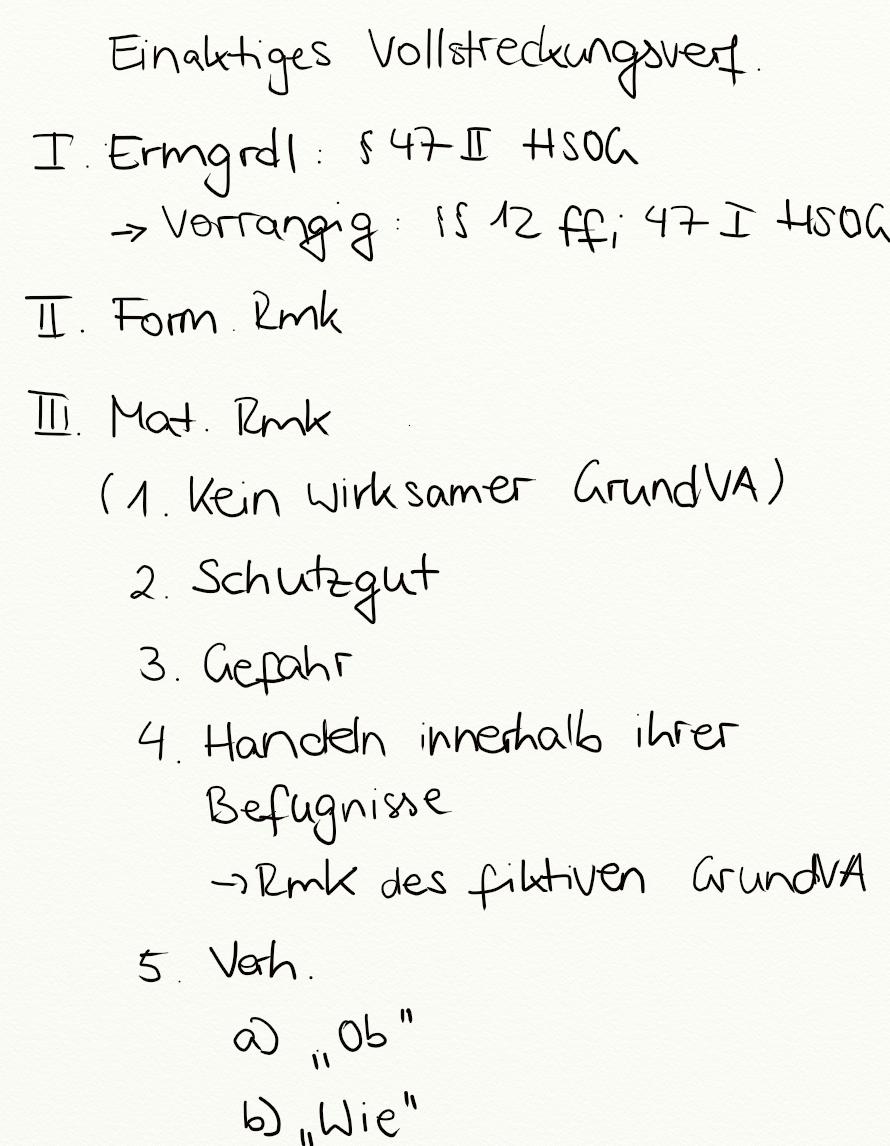 Einaktiges Vollstreckungsverf.
I. Ermgrdl: § 47 II HSOG
→ Vorrangig: §§ 12 ff; 47 I HSOG
II. Form. Rmk
III. Mat. Rmk
(1. Kein wirksamer GrundVA)
2. Schutzgut
3. Gefahr
4. Handeln innerhalb ihrer
Befugnisse
→ Rmk des fiktiven GrundVA
5. Verh.
a) „Ob"
b) „Wie"